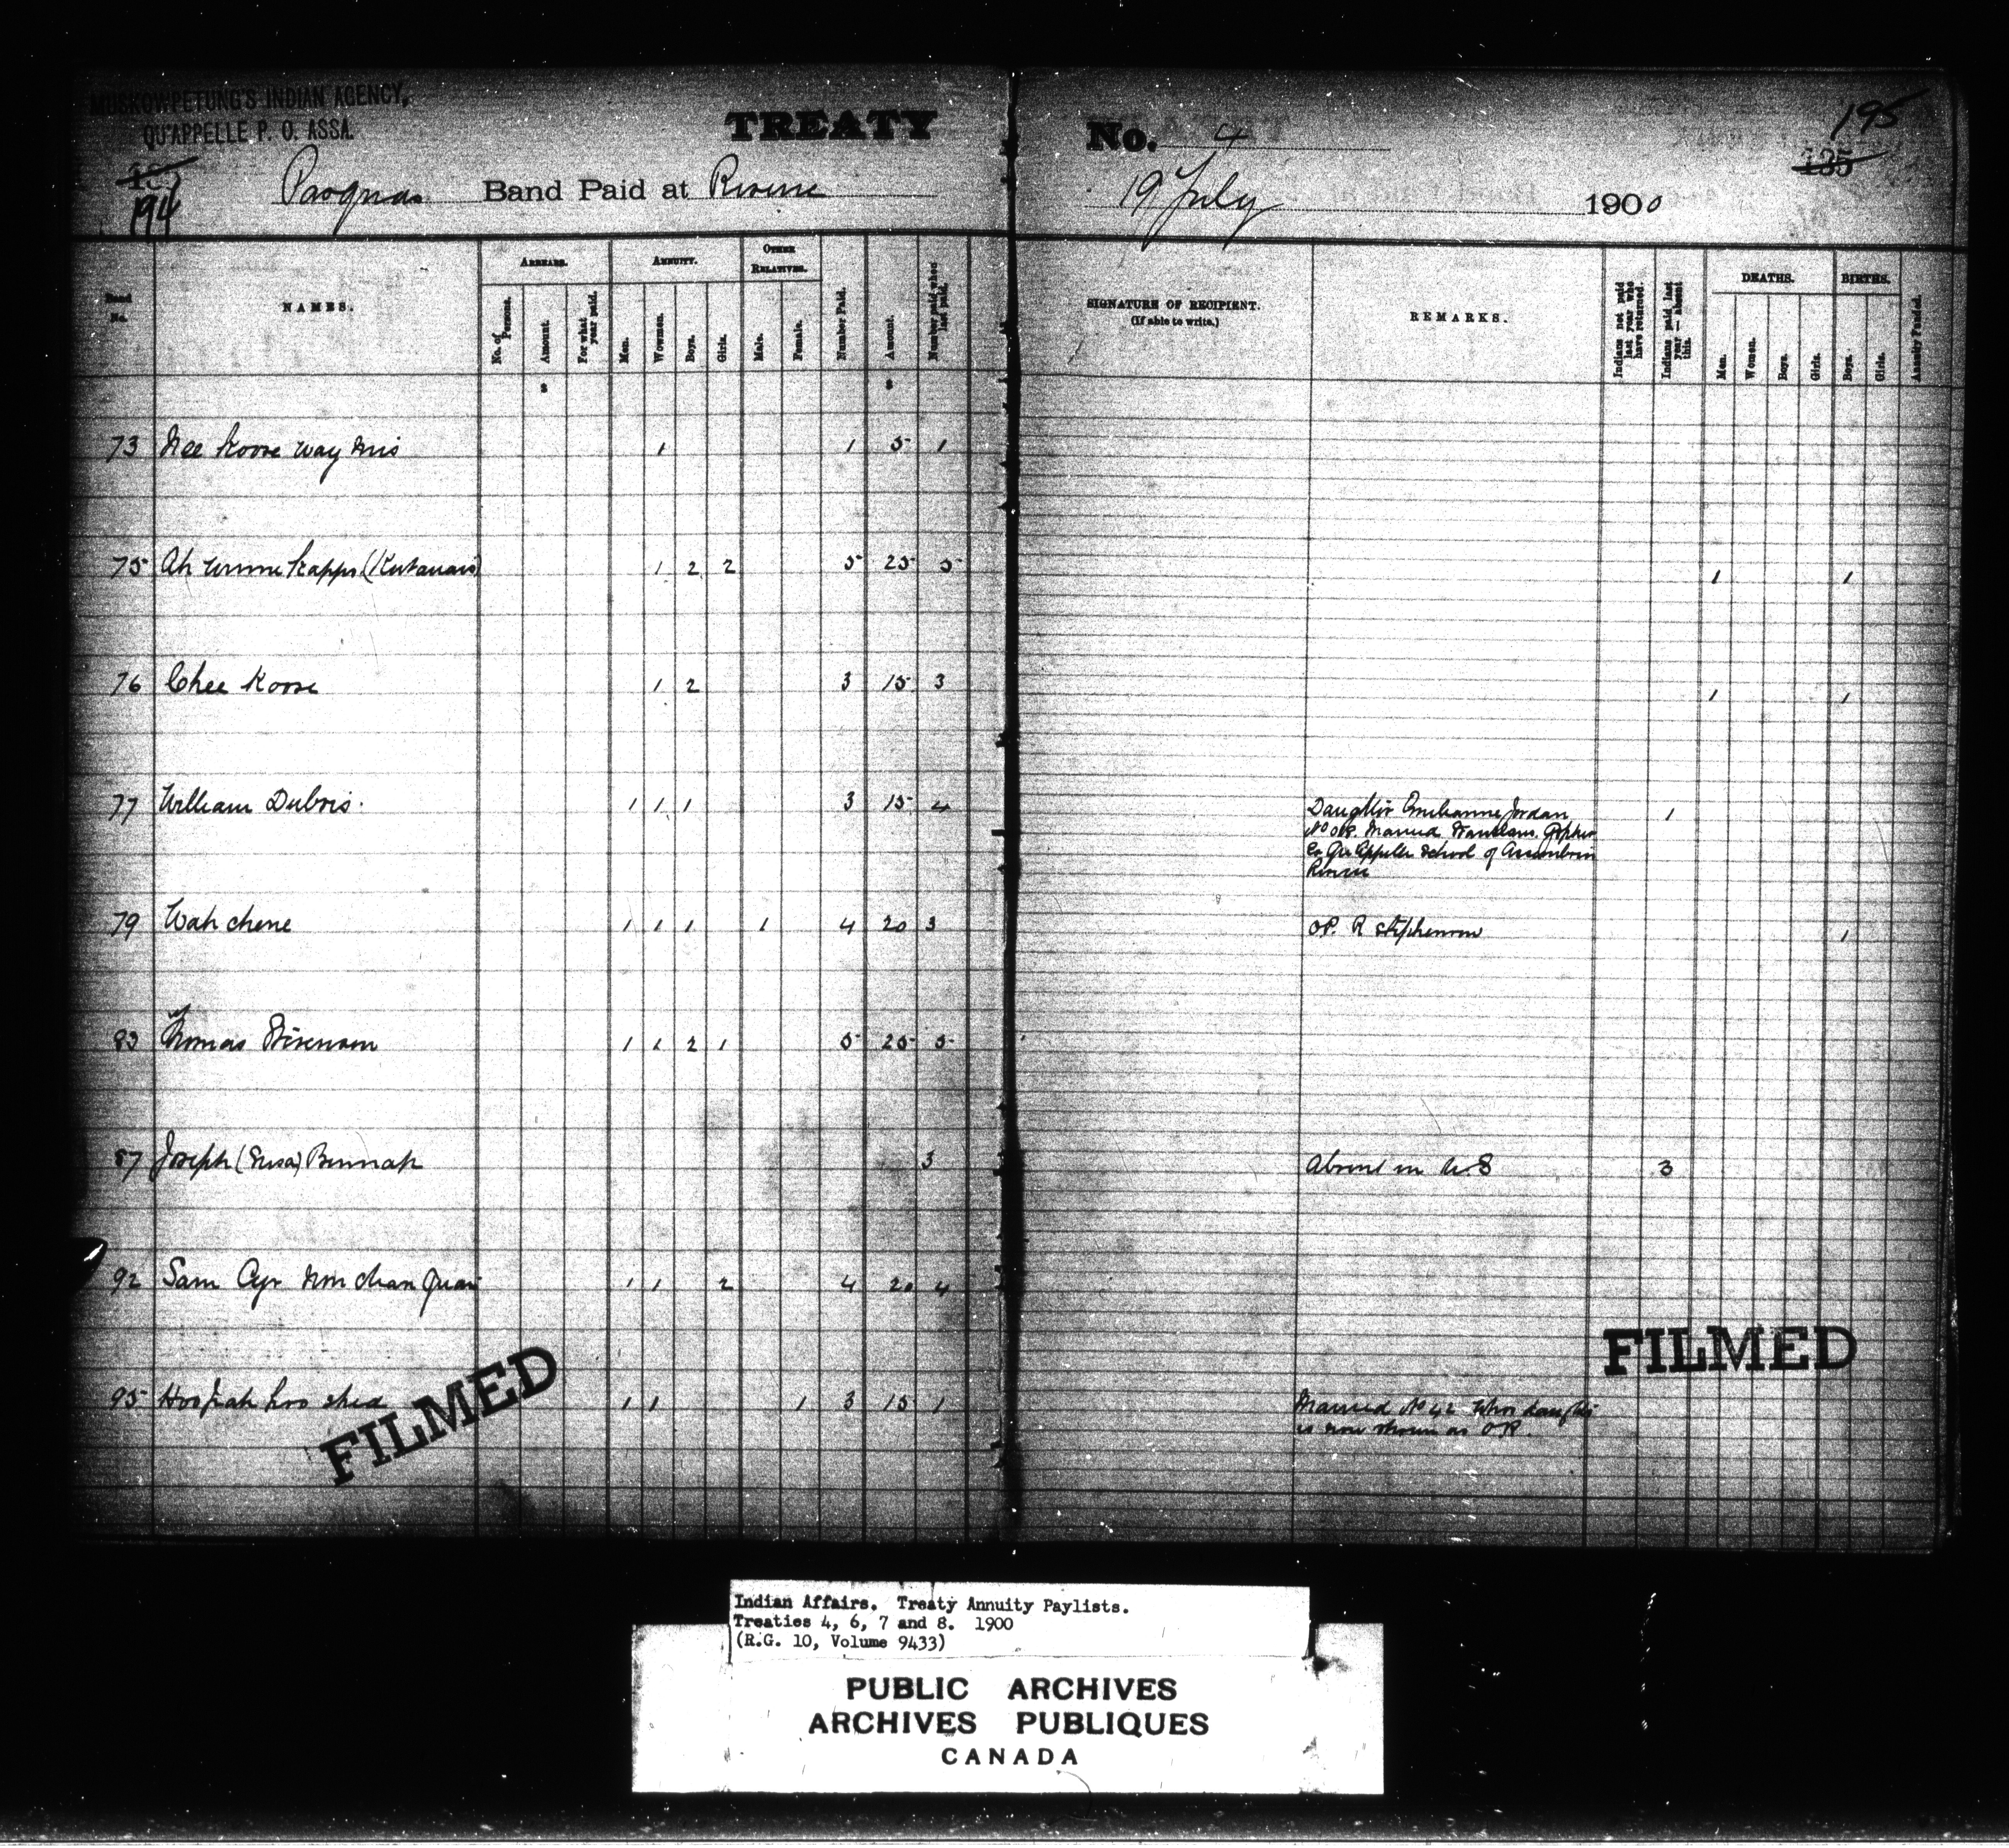 MUSKOWPETUNG'S INDIAN AGENCY,
QU'APPELLE P. O. ASSA.
TREATY No. 4
195
135
194
Pasquas Band Paid at Reserve 19 July 1900
Band No.
NAMES.
ARREARS.
No. of Persons.
Amount.
For what year paid.
ANNUITY.
Men.
Women.
Boys.
Girls.
OTHER RELATIVES.
Male.
Female.
Number Paid.
Amount.
Number paid when last paid.
SIGNATURE OF RECIPIENT.
(If able to write.)
REMARKS.
Indians not paid last year who have returned.
Indians paid last year — absent this.
DEATHS.
Men.
Women.
Boys.
Girls.
BIRTHS.
Boys.
Girls.
Annuity Funded.
$ $
73 Nee Koose way mis 1 1 5 1
75 Ah (Kutanais) 1 2 2 5 25 5 1 1
76 Chee Koose 1 2 3 15 3 1 1
77 William Dubois. 1 1 1 3 15 4 Daughter Jordan 1
No OP. Married Gopher
Qu'Appelle School of Assiniboin
Reserve
79 Wah chene 1 1 1 1 4 20 3 OP. R Stephenson 1
83 Thomas Stevenson 1 1 2 1 5 25 5
87 Joseph (Susa) Bennah 3 Absent in U.S 3
92 Sam Cyr 1 1 2 4 20 4
95 1 1 1 3 15 1 Married No 42 whos daughter
is now shown as OR.
FILMED
FILMED
Indian Affairs. Treaty Annuity Paylists.
Treaties 4, 6, 7 and 8. 1900
(R.G. 10, Volume 9433)
PUBLIC ARCHIVES
ARCHIVES PUBLIQUES
CANADA